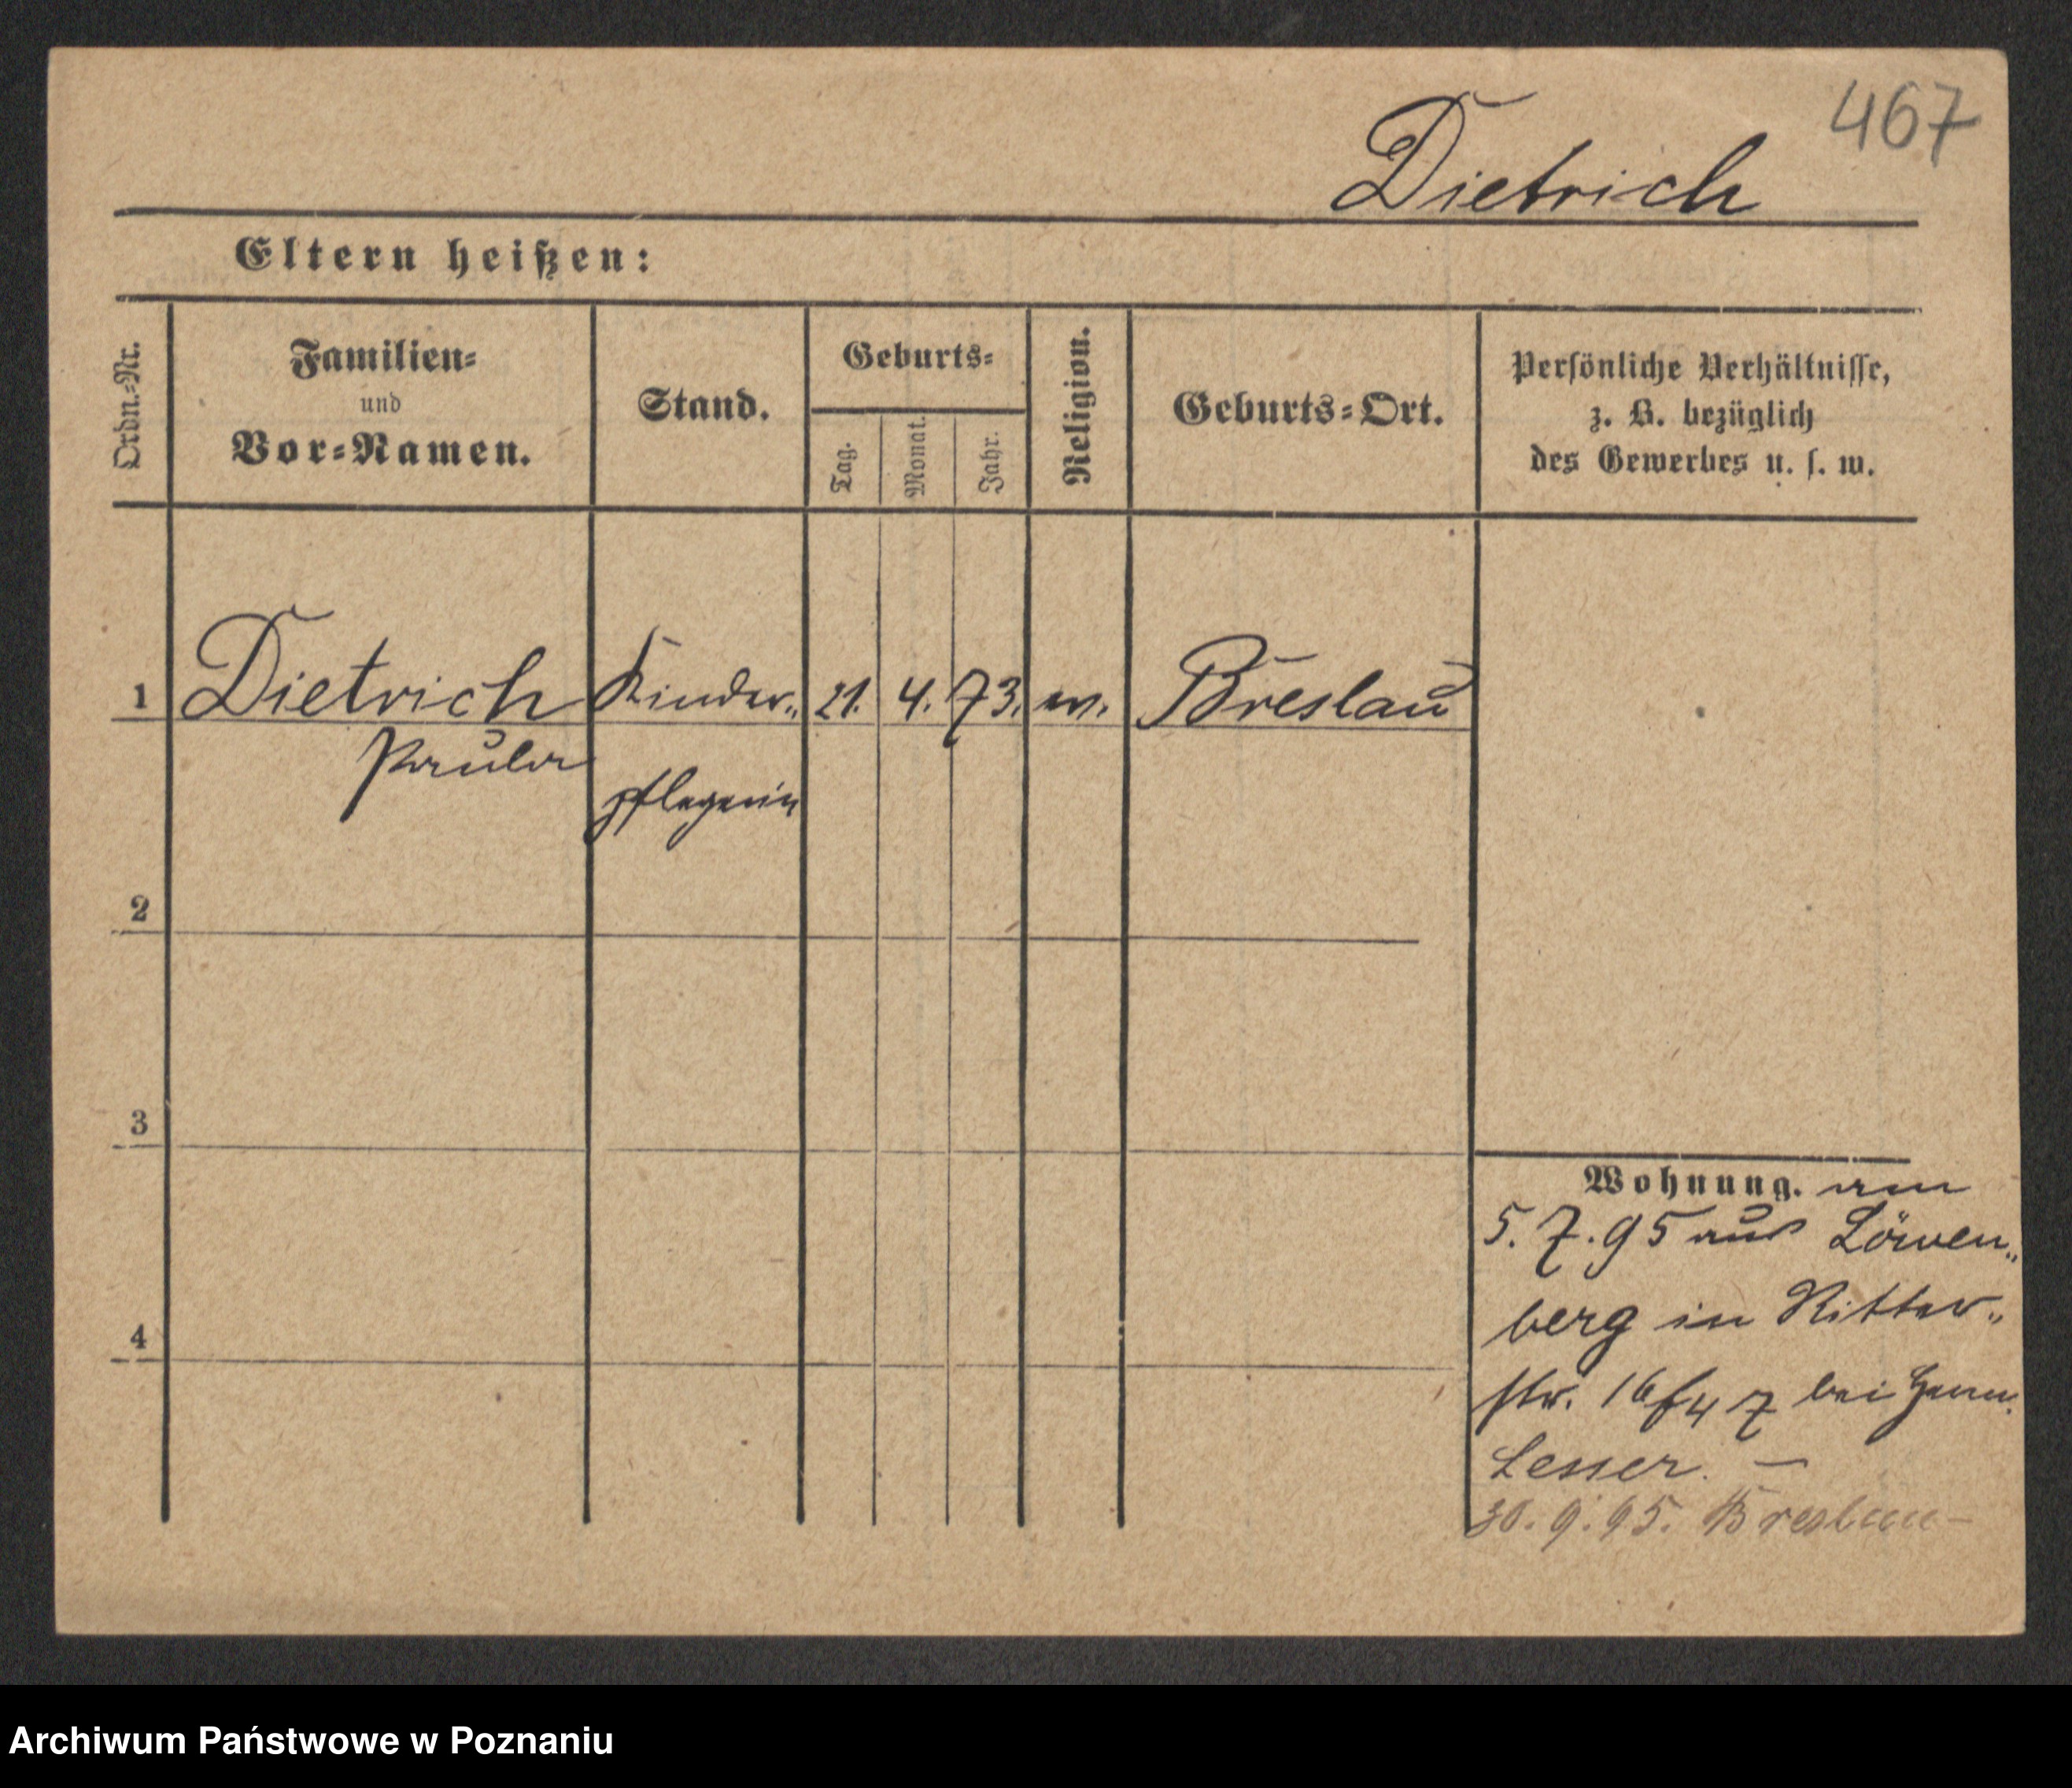 467
Dietrich
Eltern heißen:
Ordn.-Nr.
Familien-
und
Vor-Namen.
Stand.
Geburts-
Tag.
Monat.
Jahr.
Religion.
Geburts-Ort.
Persönliche Verhältnisse,
z. B. bezüglich
des Gewerbes u. s. w.
1 Dietrich Kinder„ 21. 4. 73. ev. Breslau
Paula
pflegerin
2
3
4
Wohnung. am
5. 7. 95 aus Löwen„
berg in Ritter„
str. 16 bei
Lesser. —
30. 9. 95. Breslau —
Archiwum Państwowe w Poznaniu